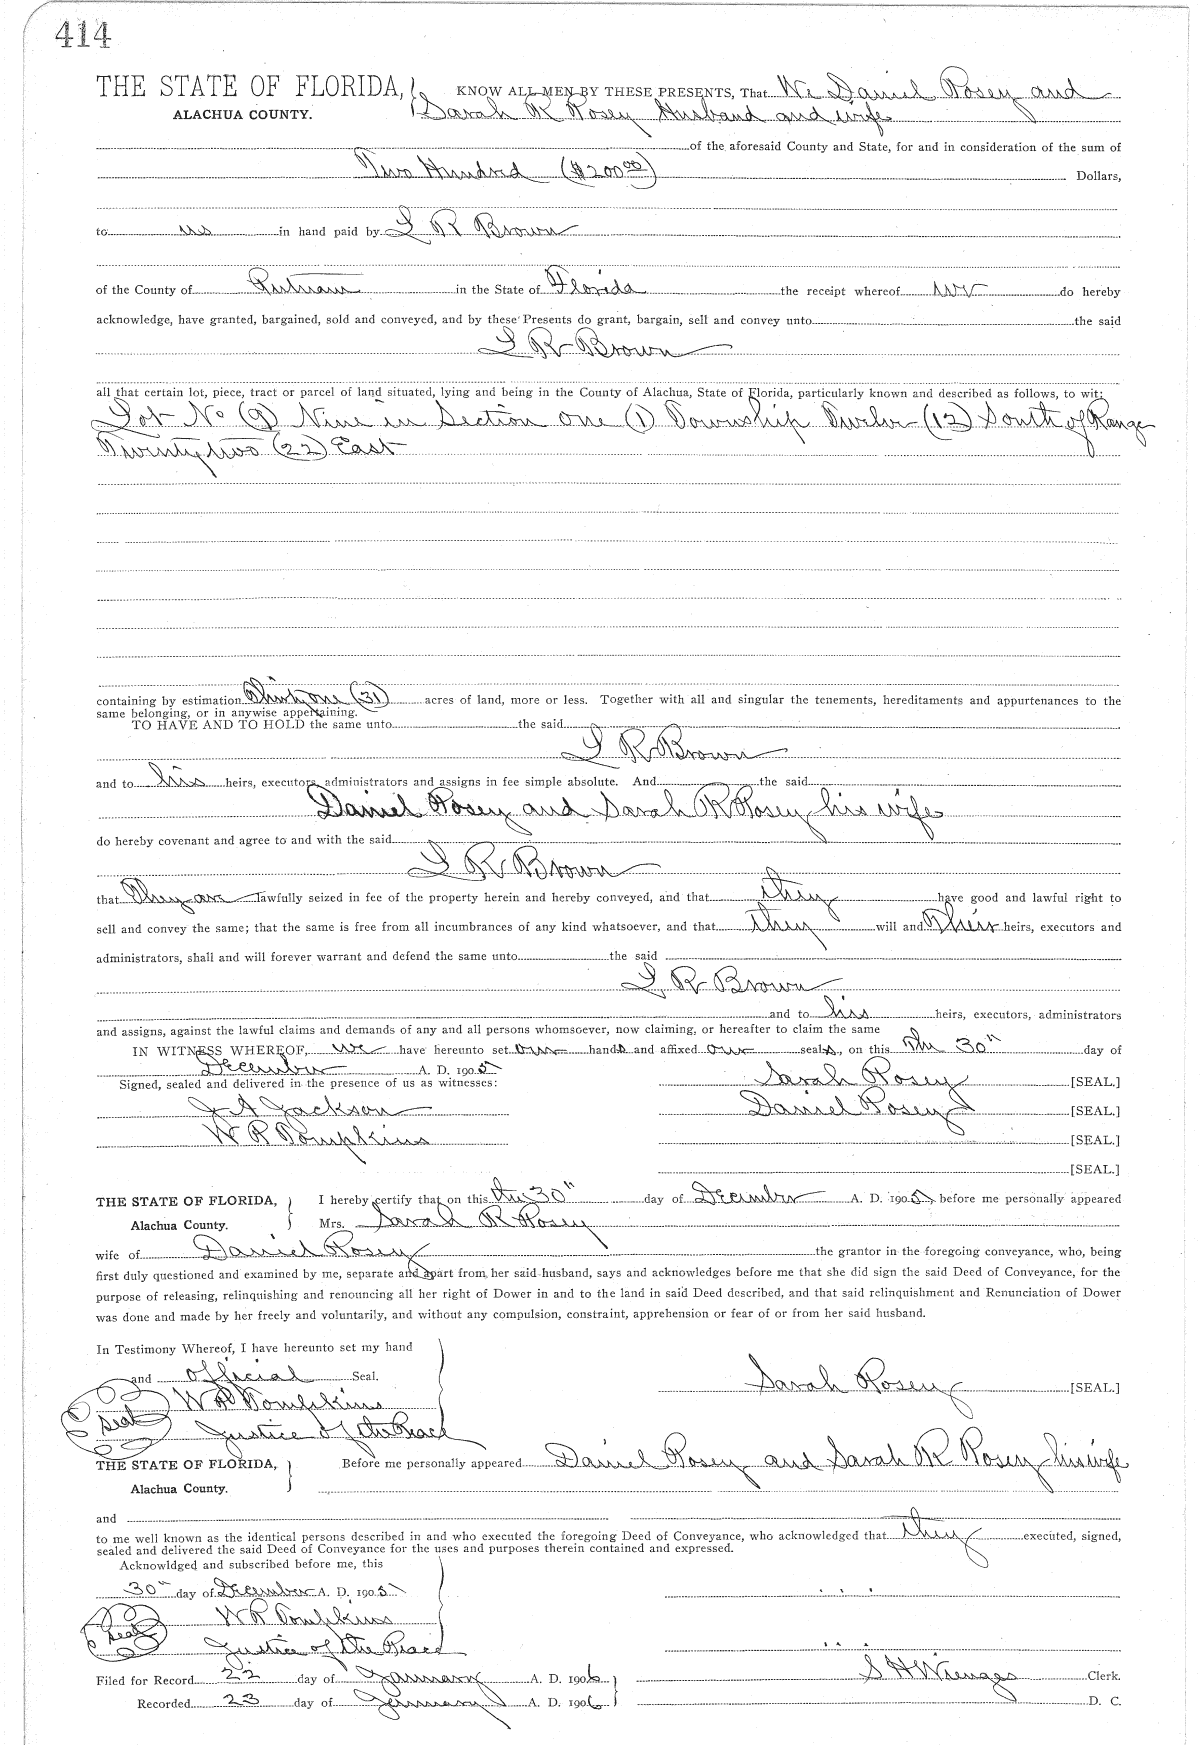 414
THE STATE OF FLORIDA, KNOW ALL MEN BY THESE PRESENTS, That We Daniel Posey and
ALACHUA COUNTY. Sarah R Posey Husband and wife
of the aforesaid County and State, for and in consideration of the sum of
Two Hundred ($200.00) Dollars,
to us in hand paid by L R Brown
of the County of Putnam in the State of Florida the receipt whereof we do hereby
acknowledge, have granted, bargained, sold and conveyed, and by these Presents do grant, bargain, sell and convey unto the said
L R Brown
all that certain lot, piece, tract or parcel of land situated, lying and being in the County of Alachua, State of Florida, particularly known and described as follows, to wit:
Lot No (9) Nine in Section One (1) Township Twelve (12) South of Range
Twenty two (22) East
containing by estimation Thirty one (31) acres of land, more or less. Together with all and singular the tenements, hereditaments and appurtenances to the
same belonging, or in anywise appertaining.
TO HAVE AND TO HOLD the same unto the said
L R Brown
and to his heirs, executors, administrators and assigns in fee simple absolute. And the said
Daniel Posey and Sarah R Posey his wife
do hereby covenant and agree to and with the said
L R Brown
that They are lawfully seized in fee of the property herein and hereby conveyed, and that they have good and lawful right to
sell and convey the same; that the same is free from all incumbrances of any kind whatsoever, and that they will and Their heirs, executors and
administrators, shall and will forever warrant and defend the same unto the said
L R Brown
and to his heirs, executors, administrators
and assigns, against the lawful claims and demands of any and all persons whomsoever, now claiming, or hereafter to claim the same
IN WITNESS WHEREOF, we have hereunto set our hands and affixed our seals, on this the 30" day of
December A. D. 1905
Signed, sealed and delivered in the presence of us as witnesses: Sarah Posey [SEAL.]
J A Jackson Daniel Posey [SEAL.]
W R Tompkins [SEAL.]
[SEAL.]
THE STATE OF FLORIDA, I hereby certify that on this the 30" day of December A. D. 1905 before me personally appeared
Alachua County. Mrs. Sarah R Posey
wife of Daniel Posey the grantor in the foregoing conveyance, who, being
first duly questioned and examined by me, separate and apart from her said husband, says and acknowledges before me that she did sign the said Deed of Conveyance, for the
purpose of releasing, relinquishing and renouncing all her right of Dower in and to the land in said Deed described, and that said relinquishment and Renunciation of Dower
was done and made by her freely and voluntarily, and without any compulsion, constraint, apprehension or fear of or from her said husband.
In Testimony Whereof, I have hereunto set my hand
and official Seal. Sarah Posey [SEAL.]
W R Tompkins
Seal Justice of the Peace
THE STATE OF FLORIDA, Before me personally appeared Daniel Posey and Sarah R Posey his wife
Alachua County.
and
to me well known as the identical persons described in and who executed the foregoing Deed of Conveyance, who acknowledged that they executed, signed,
sealed and delivered the said Deed of Conveyance for the uses and purposes therein contained and expressed.
Acknowldged and subscribed before me, this
30" day of December A. D. 1905
W R Tompkins
Seal Justice of the Peace
Filed for Record 22 day of January A. D. 1906 S H Wienges Clerk.
Recorded 23 day of January A. D. 1906 D. C.